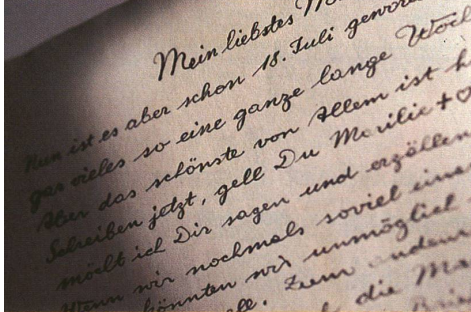 Mein liebstes
Nun ist es aber schon 18. Juli
gar vieles so eine ganze lange
Aber das schönste von Allem ist
Schreiben jetzt, gell Du
möcht ich Dir sagen und erzällen
Wenn wir nochmals soviel
könnten wir unmöglich
Zum
die